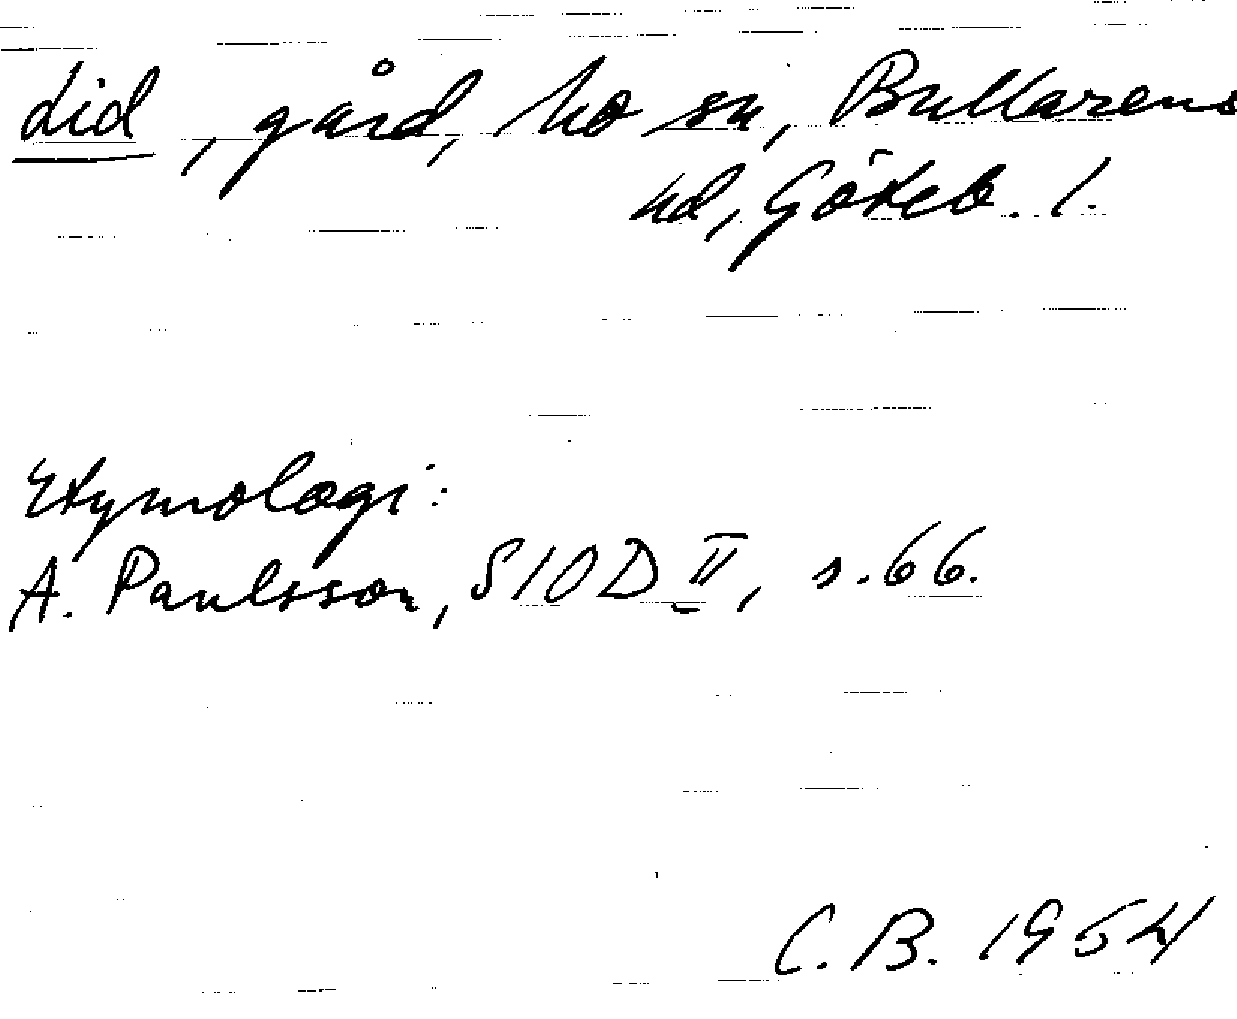 Lid, gård, Mo sn, Bullarens
hd, Göteb. l.
Etymologi:
A. Paulsson, SIOD II, s. 66.
C. B. 1954